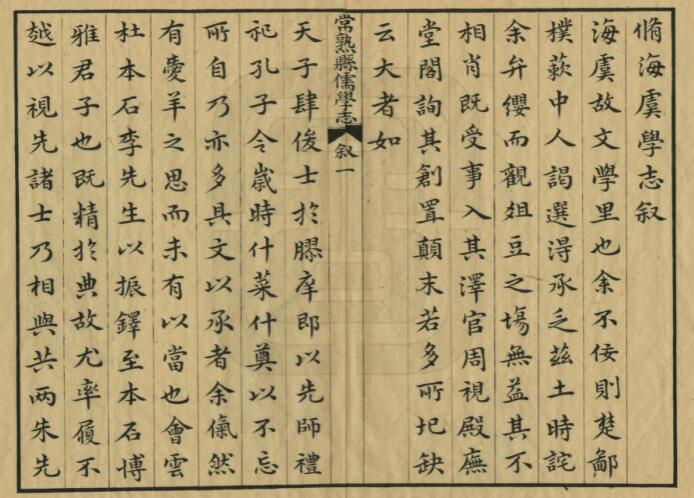 脩海虞學志叙
海虞故文學里也余不佞則楚鄙
樸蔌中人謁選淂承乏茲土時詫
余弁纓而觀俎豆之塲無益其不
相肖既受事入其澤宫周視殿廡
堂閣詢其創置顛末若多所圮缺
云大者如
常熟縣儒學志
叙一
天子肆俊士於膠庠即以先師禮
祀孔子令歲時什菜什奠以不忘
所自乃亦多具文以承者余俬然
有愛羊之思而未有以當也會雲
杜本石李先生以振鐸至本石博
雅君子也既精於典故尤率履不
越以視先諸士乃相與共两朱先